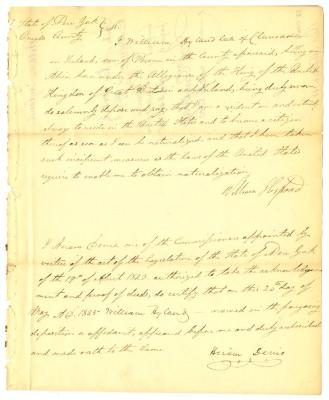 State of New York } ss.
Oneida County
I William Hyland late of
in Ireland, now of in the County aforesaid, being an
Alien born under the Allegiance of the King of the United
Kingdom of Great Britain and Ireland, being duly sworn,
do solemnly depose and say that I am a resident and intend
always to reside in the United States and to become a citizen
thereof as soon as I can be naturalized and that I have taken
such incipient measures as the laws of the United States
require to enable me to obtain naturalization.
William Hyland
I Hiram Denio one of the Commissioners appointed by
virtue of the act of the Legislature of the State of New York
of the of April 1820 authorized to take the acknowledge-
ment and proof of deeds, do certify that on this day of
May A.D. 1825 William Hyland named in the foregoing
deposition or affidavit, appeared before me and duly subscribed
and made oath to the same.
Hiram Denio